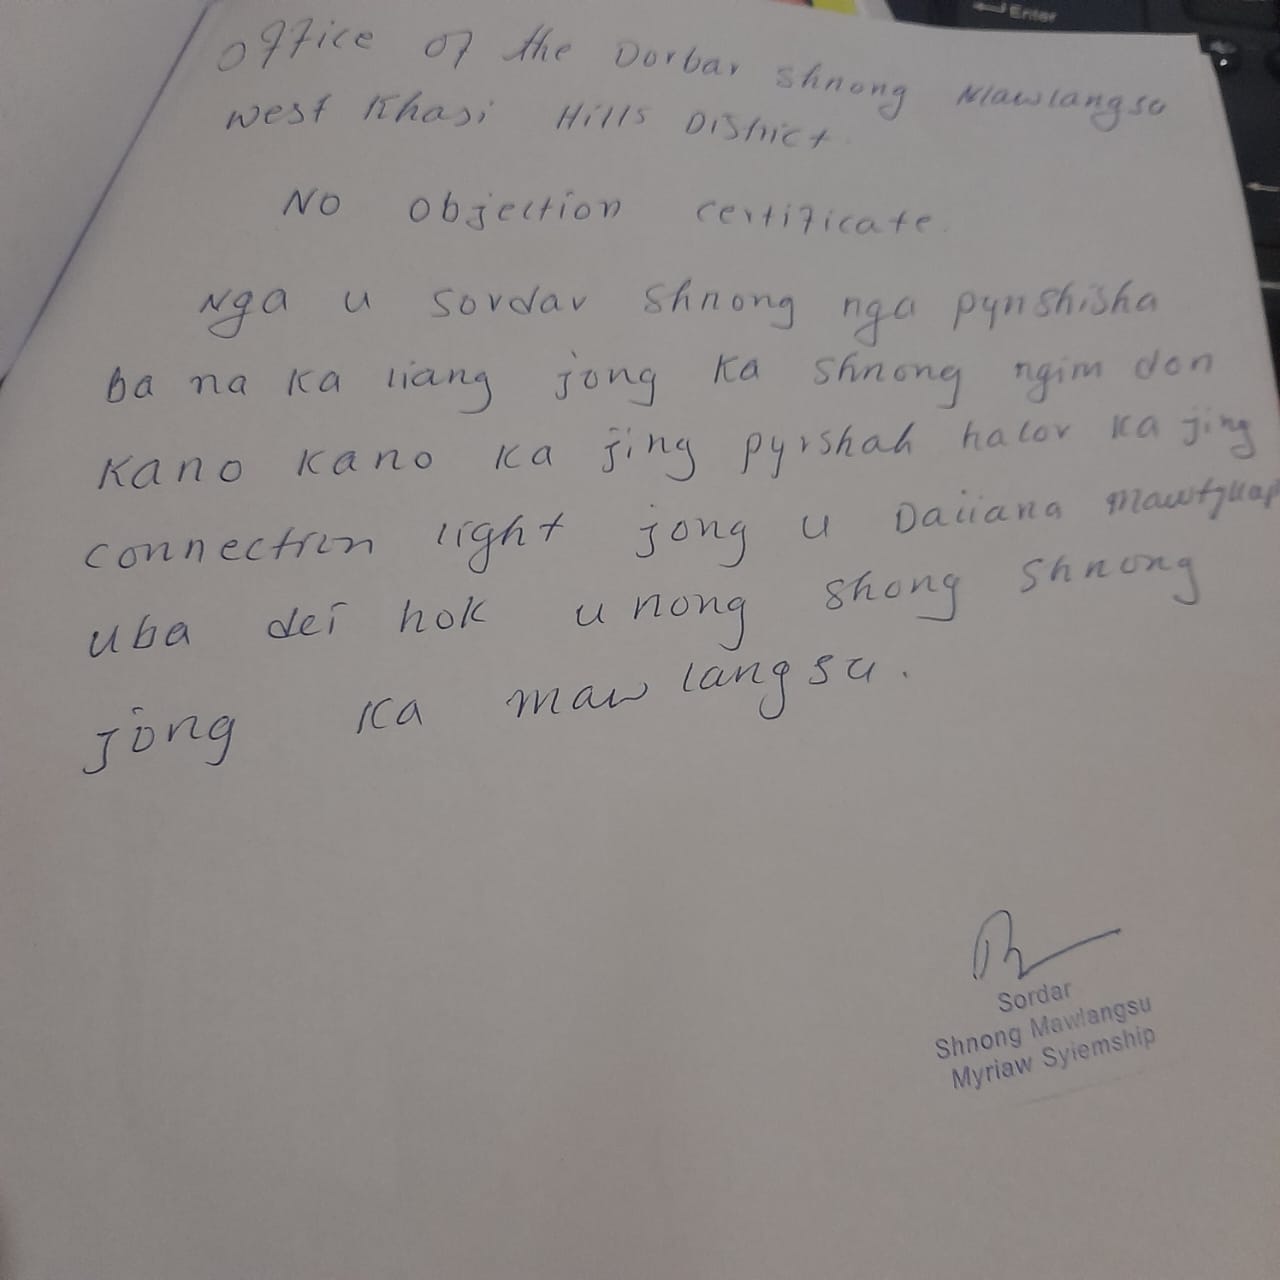 Enter
Office of the Dorbar Shnong Mawlangsu
West Khasi Hills District.
No Objection certificate.
Nga u sordar shnong nga pynshisha
ba na ka liang jong ka shnong ngim don
kano kano ka jing pyrshah halor ka jing
connection light jong u
uba dei hok u nong shong shnong
jong ka mawlangsu.
Sordar
Shnong Mawlangsu
Myriaw Syiemship